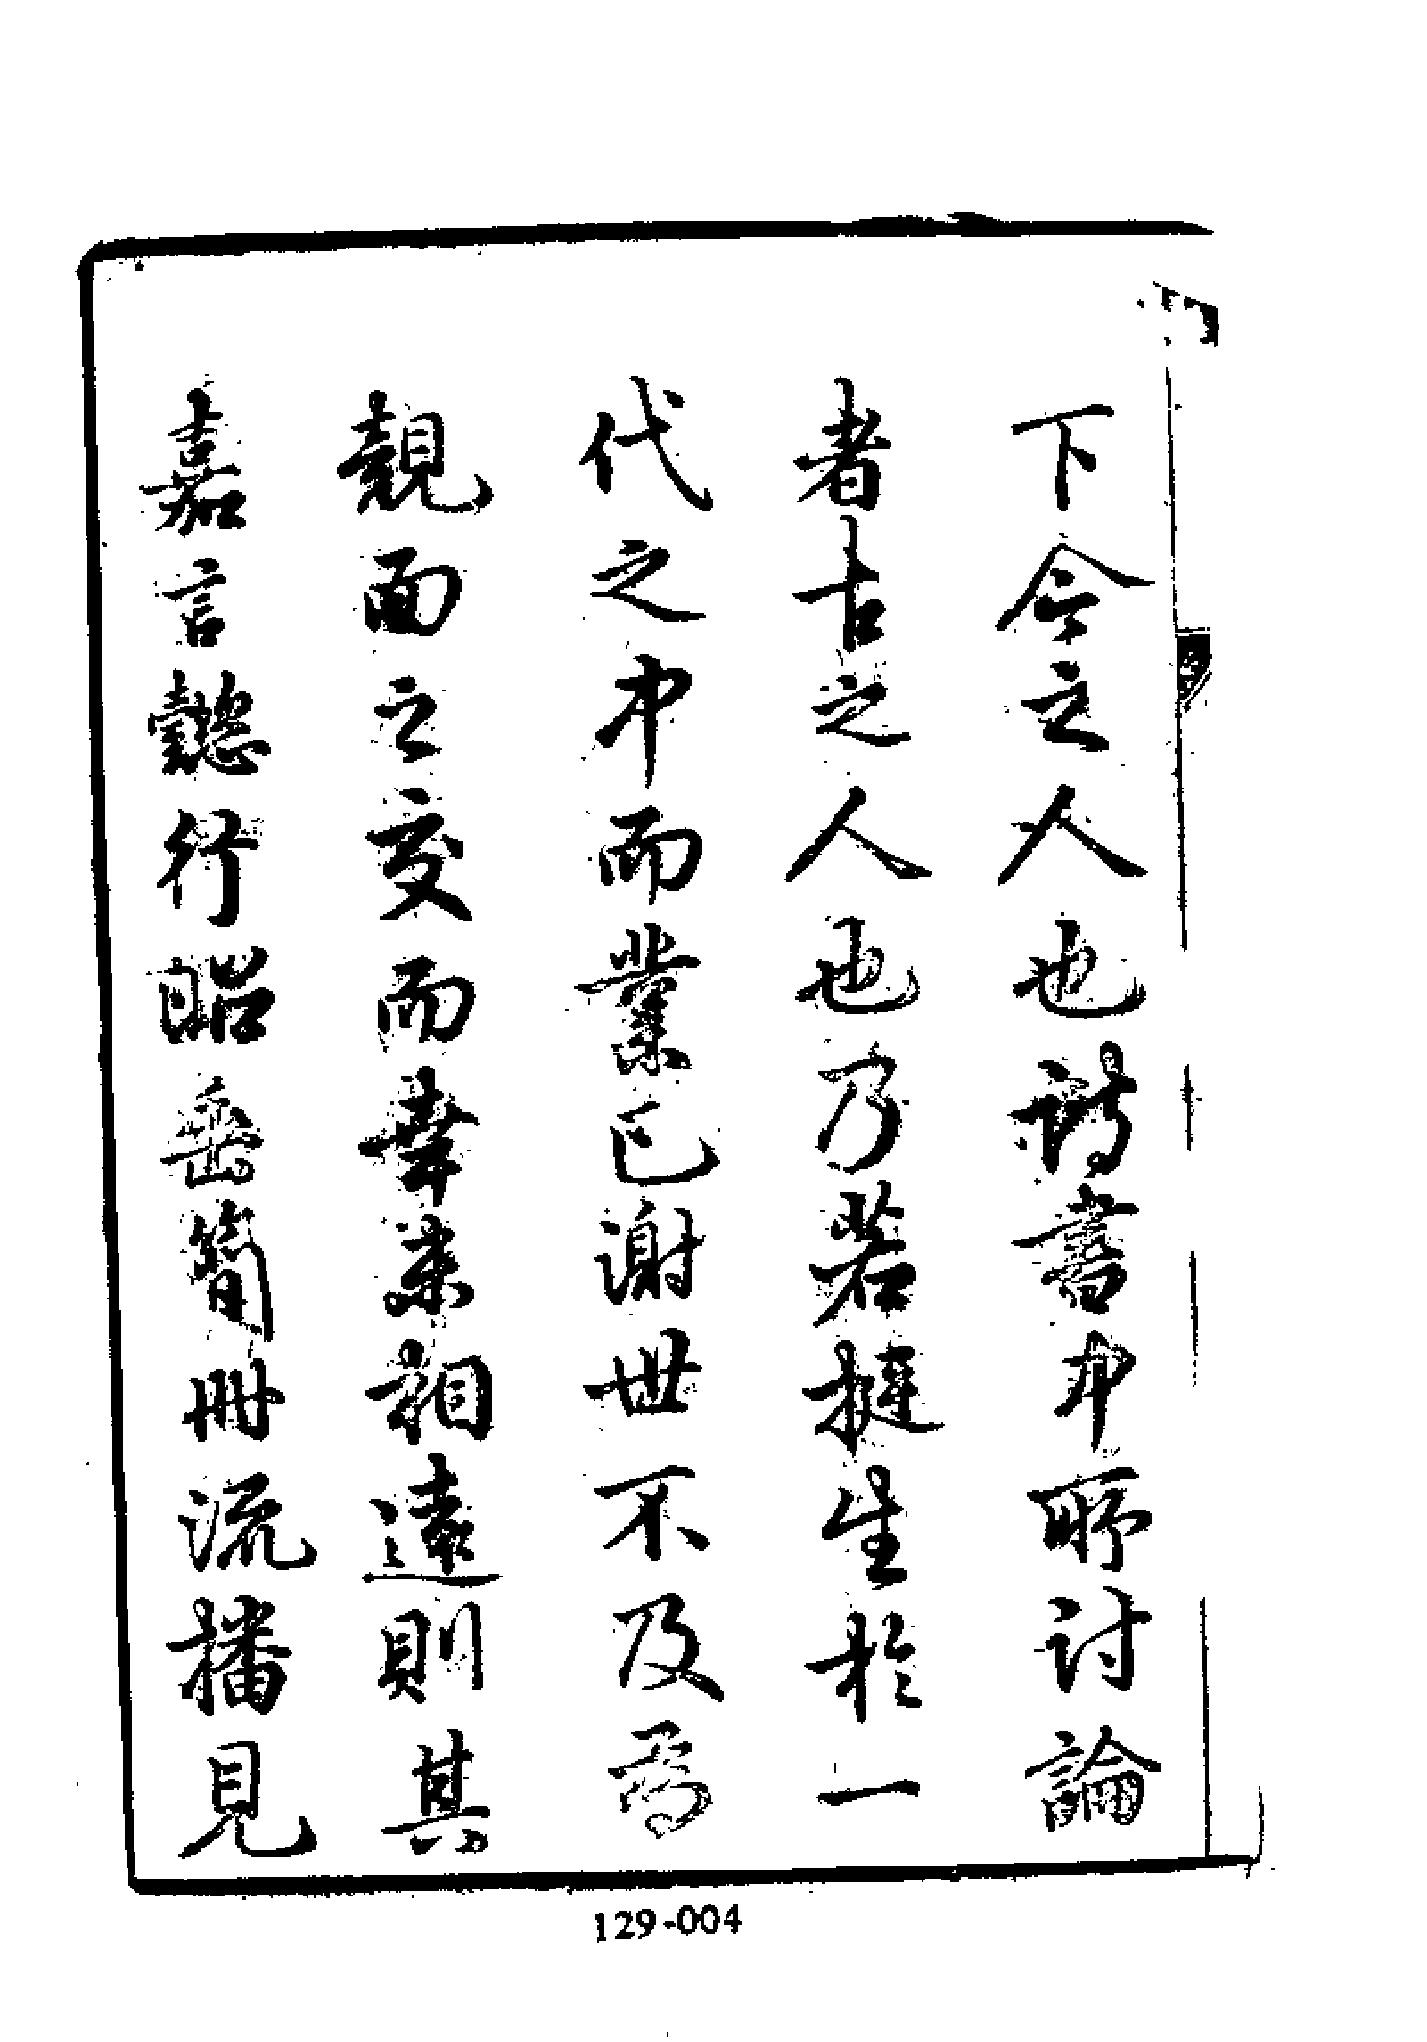 下今之人也詩書中所討論
者古之人也乃若挺生於一
代之中而業已謝世不及爲
覿面之交而幸未相遠則其
嘉言懿行昭垂簡冊流播見
129-004